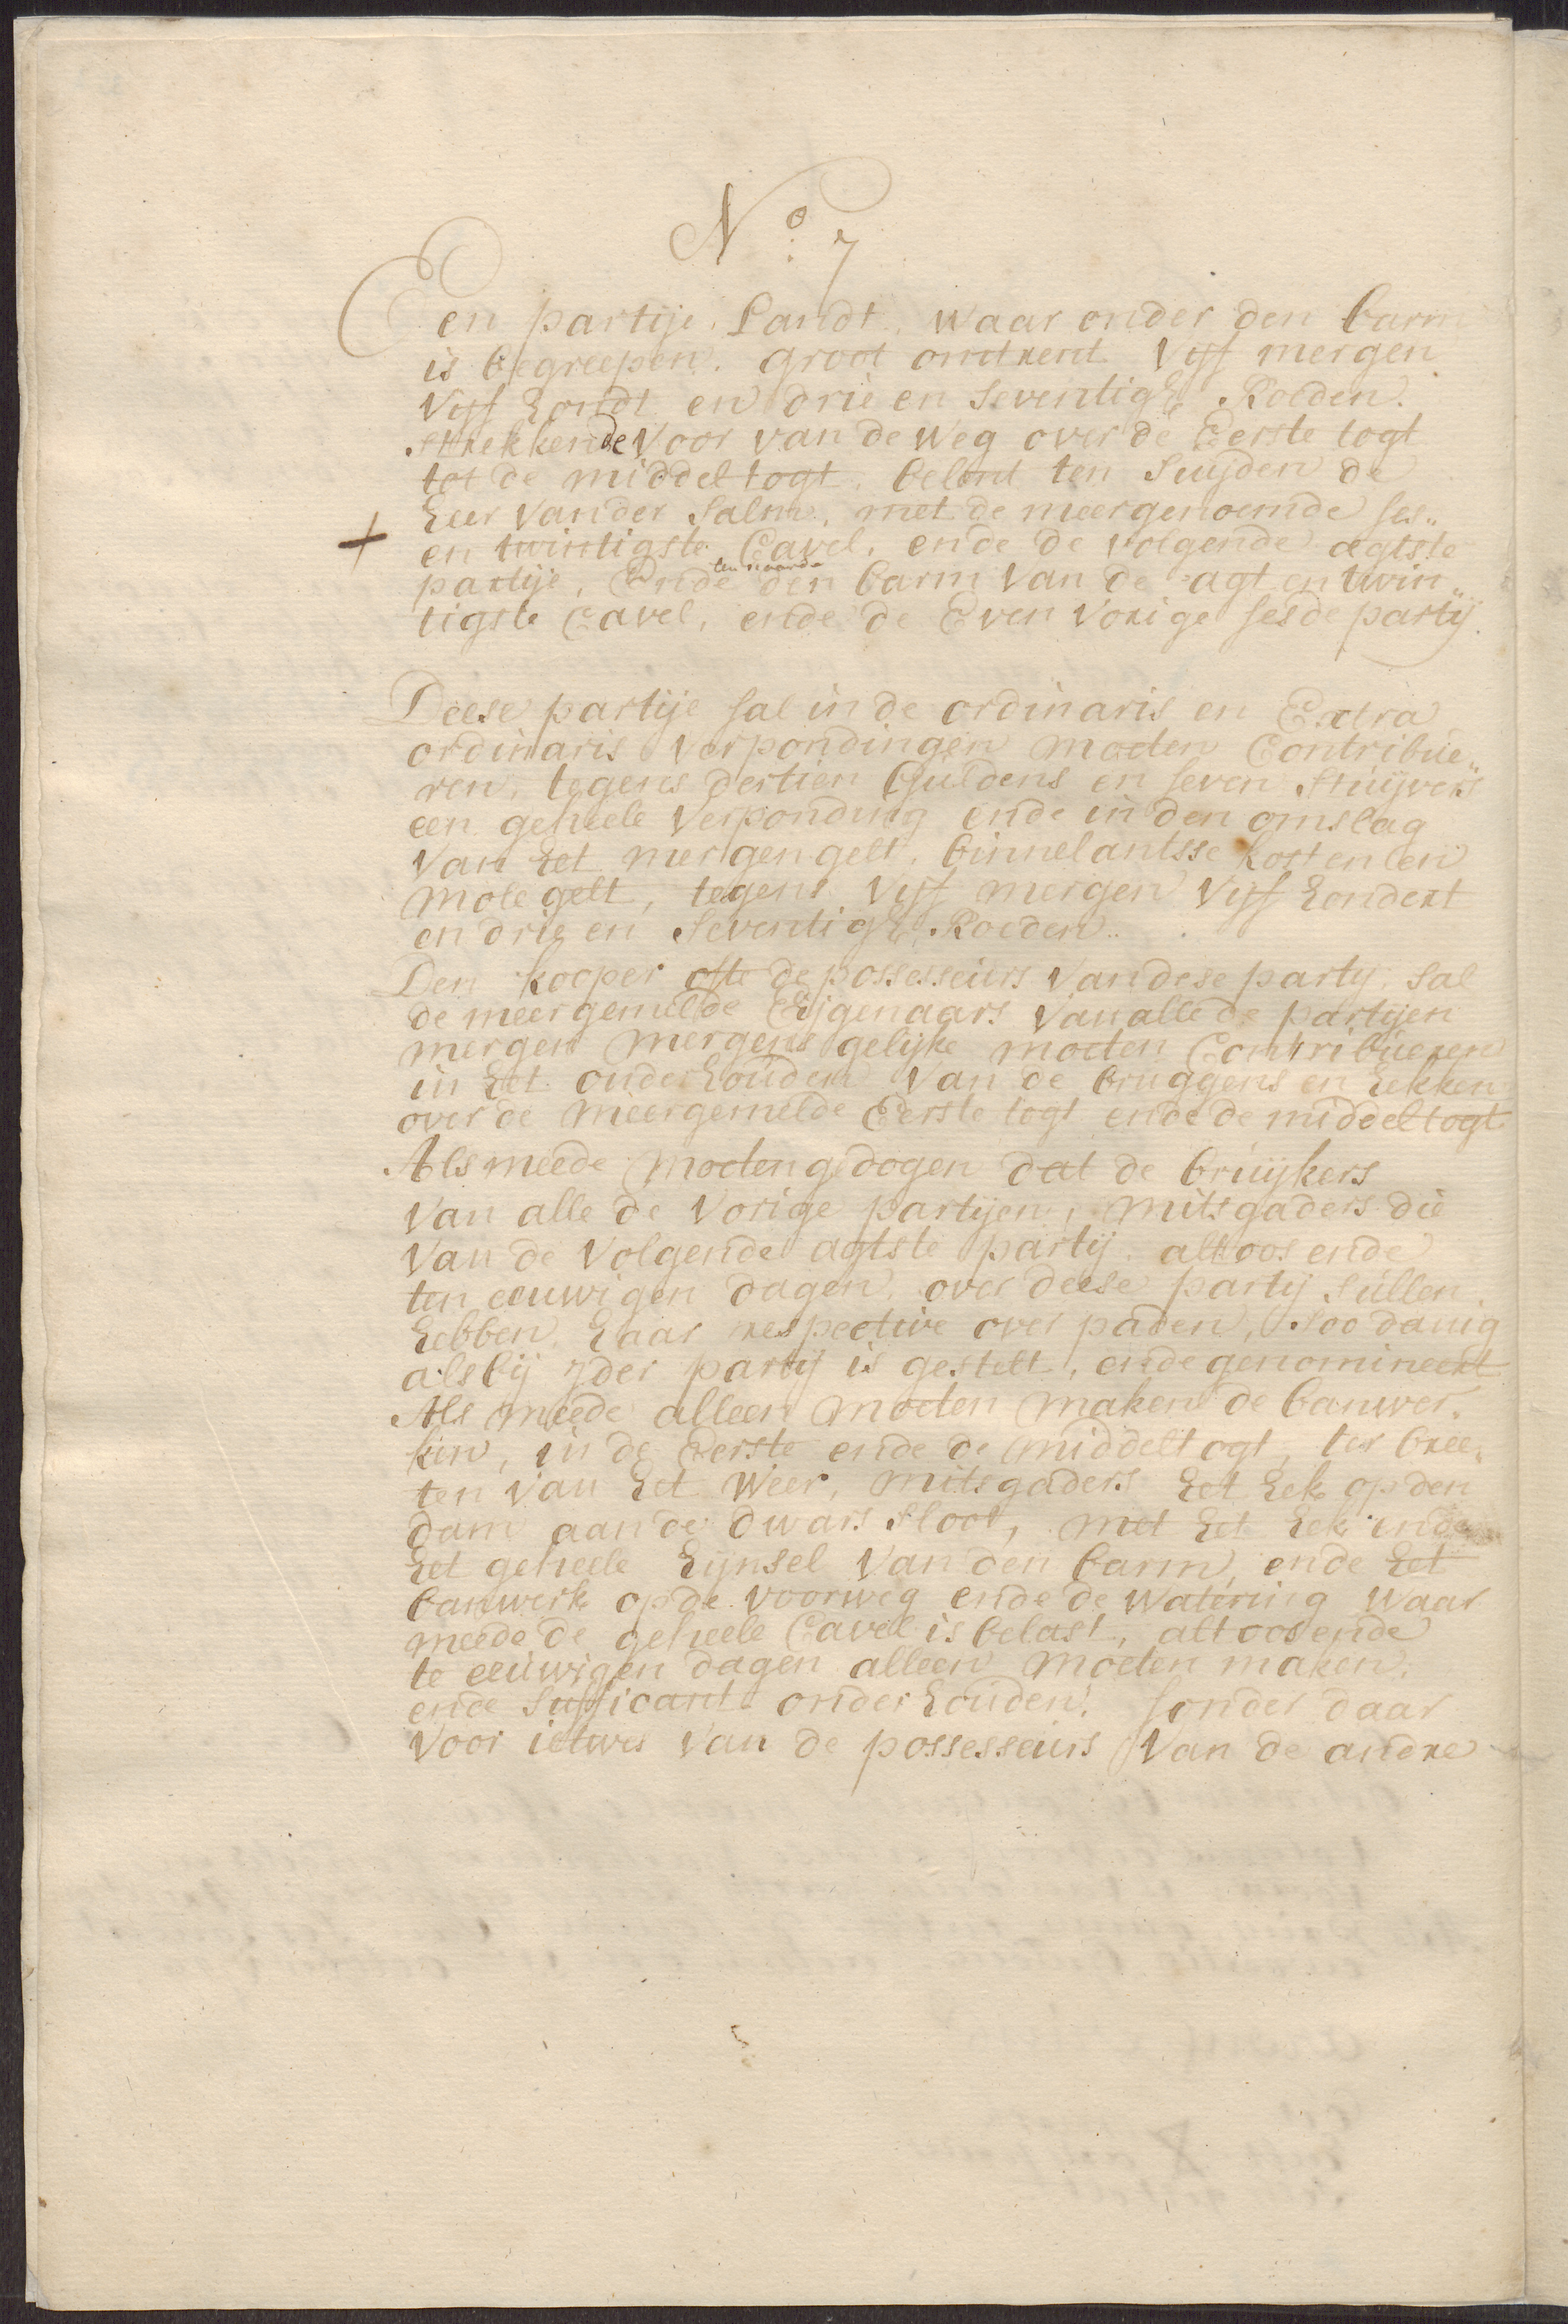 No: 7
Een partije Landt, waar onder den barm
is begreepen. groot omtrent Vijf mergen
Vijf hondt en drie en seventigh Roeden.
strekkende Voor van de Weg over de Eerste togt
tot de middeltogt, belent ten Suyden de
heer van der Salm, met de meergenoemde ses„
+ en twintigste Cavel, ende de volgende agtste
partije, Ende ten noorde den barm van de agt en twin„
tigste Cavel, ende de Even vorige sesde partij.
Deese partije sal in de ordinaris en Extra
ordinaris verpondingen moeten Contribue„
ren, tegens dertien Guldens en seven stuijvers
een geheele Verponding ende in den omslag
van het mergengelt, binnelantsse kosten en
molegelt, tegens Vijf mergen Vijf hondert
en drie en seventigh Roeden.
Den kooper ofte de possesseurs van dese party, sal
de meergemelde Eijgenaars van alle de partijen
mergen mergens gelijke moeten Contribueren
in het onderhouden van de bruggens en hekken
over de meergemelde Eerste togt ende de middeltogt
Als meede moeten gedogen dat de bruijkers
van alle de vorige partijen, mitsgaders die
van de volgende agtste partij altoos ende
ten eeuwigen dagen, over deese partij sullen
hebben haar respective over paden, soo danig
als bij ijder partij is gestelt, ende genomineert
Als meede alleen moeten maken de banwer„
ken, in de Eerste ende de middeltogt, ter bree„
ten van het Weer, mitsgaders het hek op den
dam aan de dwars sloot, met het hek ende
het geheele heijnsel van den barm, ende het
banwerk op de voorweg ende de watering waar
meede de geheele Cavel is belast, altoos ende
te eeuwigen dagen alleen moeten maken,
ende sufficant onderhouden, sonder daar
voor ietwes van de possesseurs van de andre